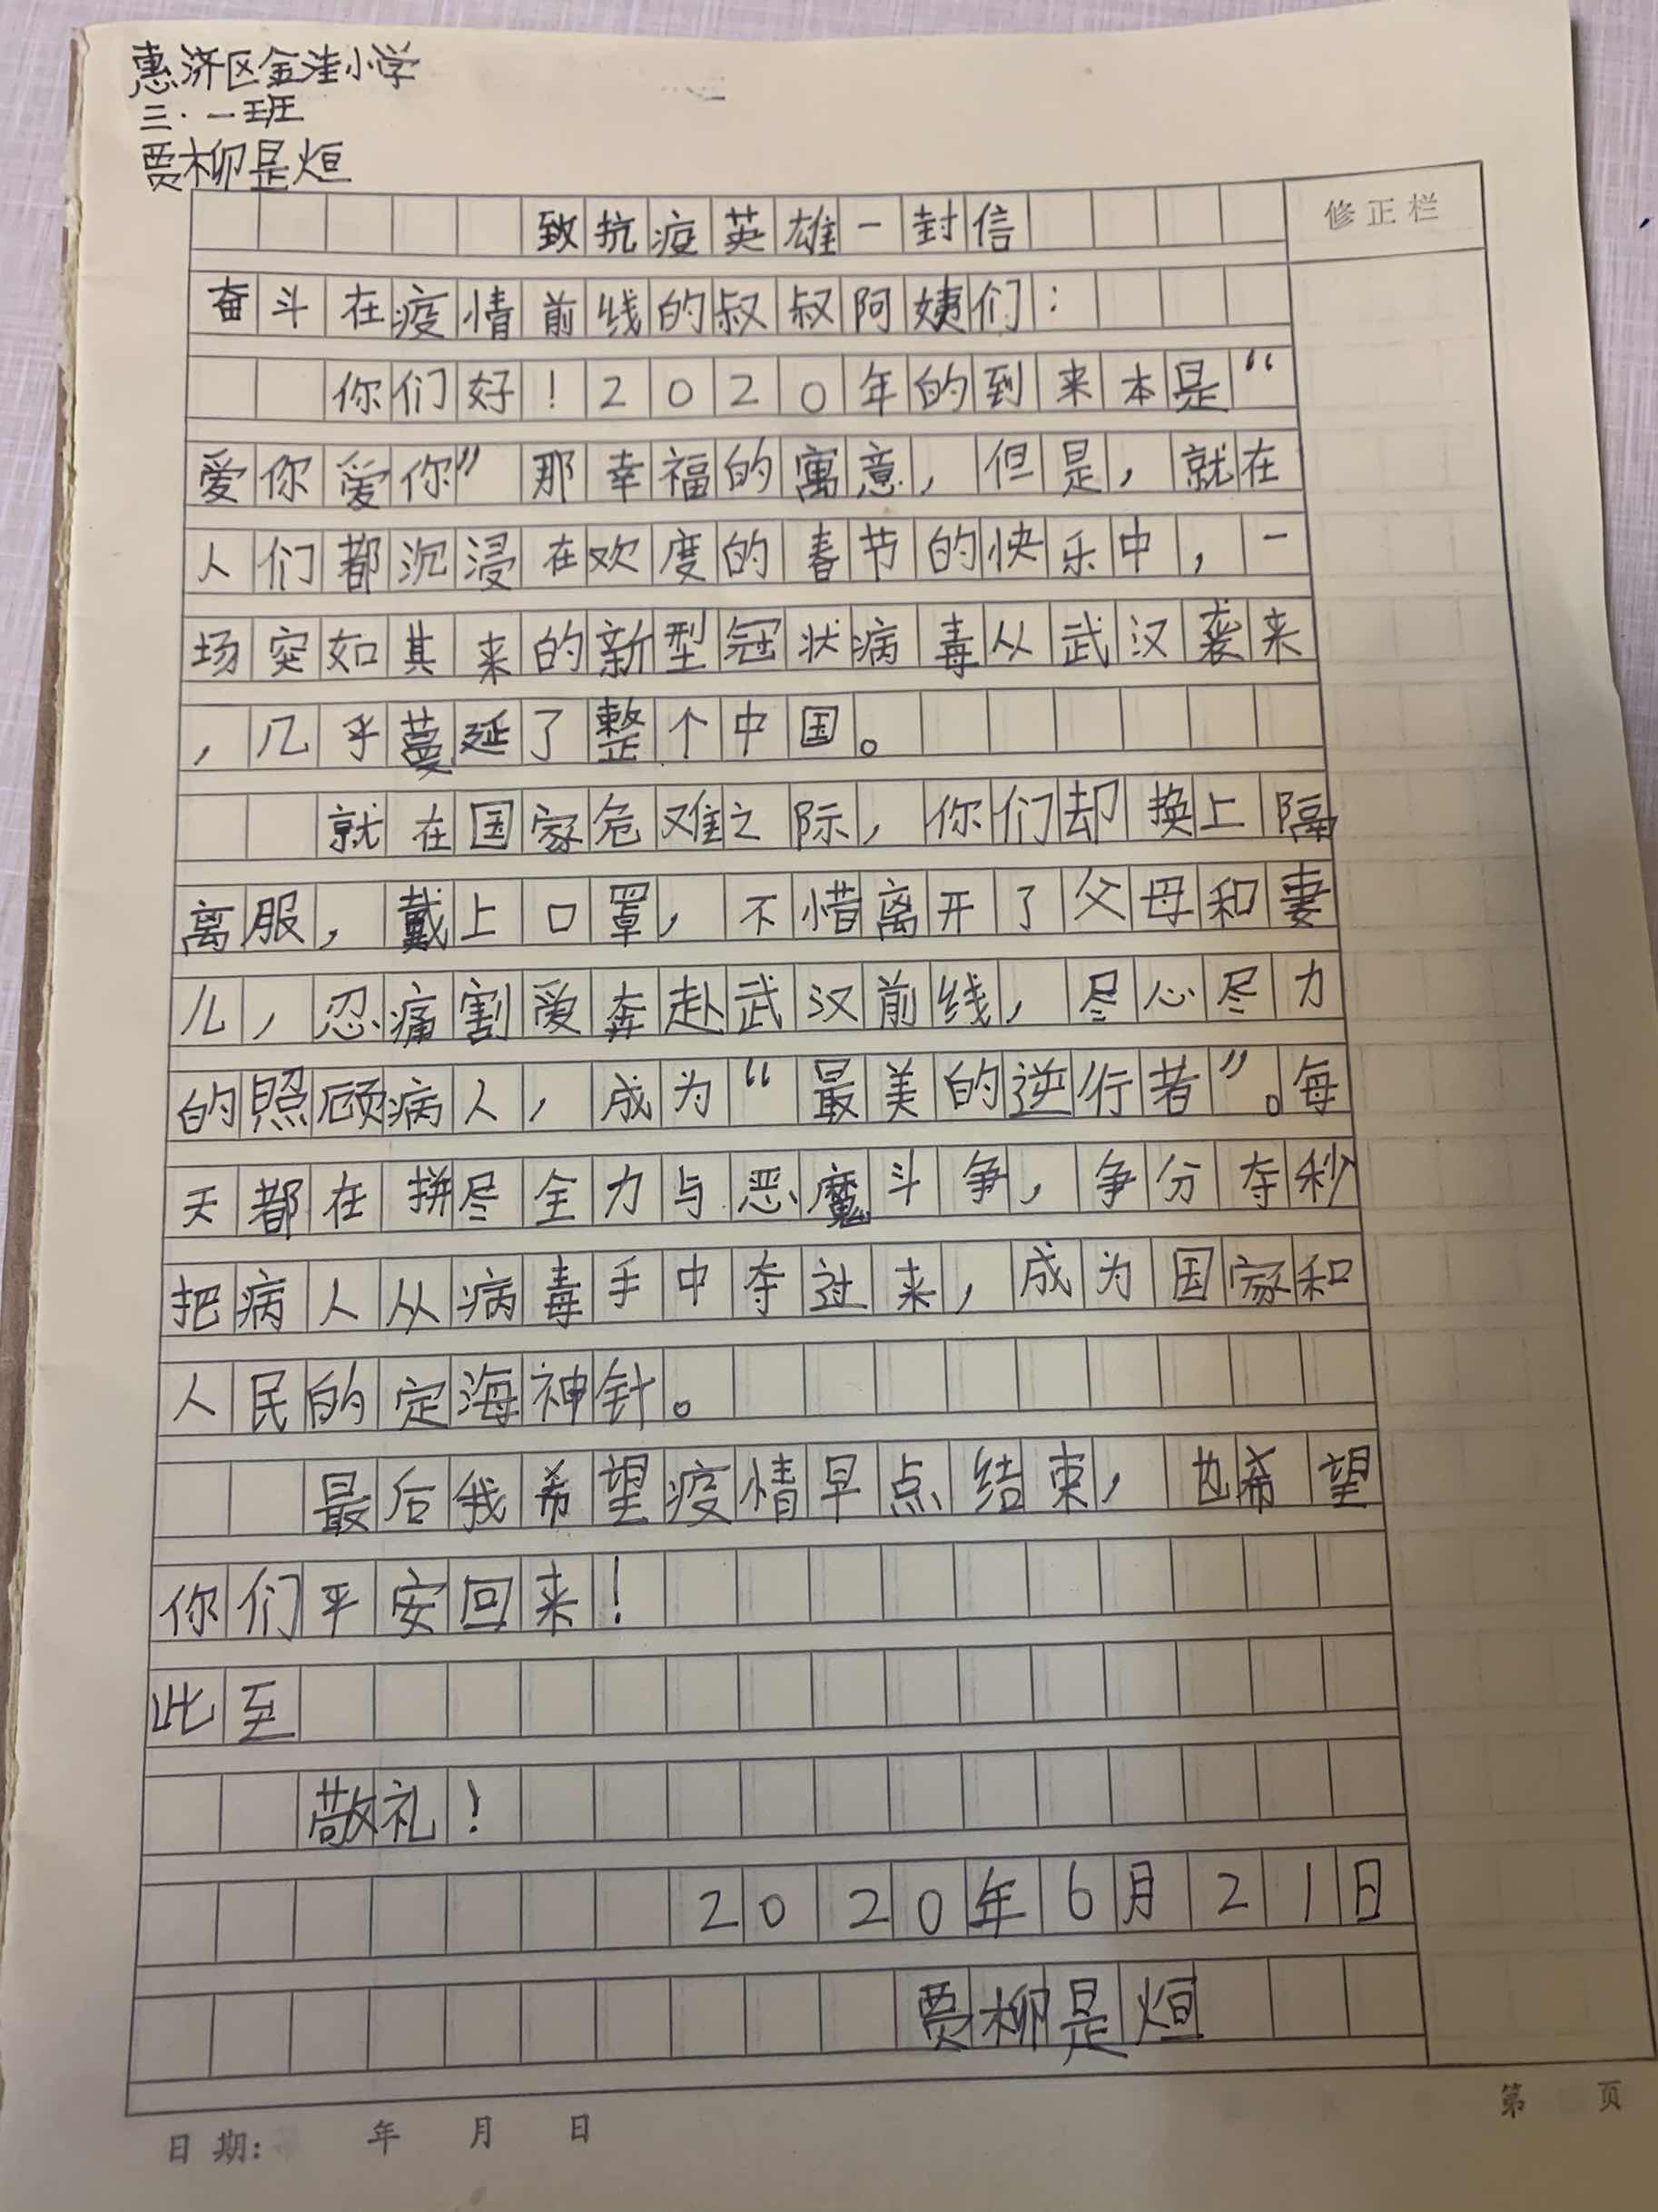 惠济区金洼小学
三·一班
贾柳是烜
致抗疫英雄一封信
修正栏
奋斗在疫情前线的叔叔阿姨们：
你们好！2020年的到来本是“
爱你爱你”那幸福的寓意，但是，就在
人们都沉浸在欢度的春节的快乐中，一
场突如其来的新型冠状病毒从武汉袭来
，几乎蔓延了整个中国。
就在国家危难之际，你们却换上隔
离服，戴上口罩，不惜离开了父母和妻
儿，忍痛割爱奔赴武汉前线，尽心尽力
的照顾病人，成为“最美的逆行者”。每
天都在拼尽全力与恶魔斗争，争分夺秒
把病人从病毒手中夺过来，成为国家和
人民的定海神针。
最后我希望疫情早点结束，也希望
你们平安回来！
此至
敬礼！
2020年6月21日
贾柳是烜
第 页
日期： 年 月 日